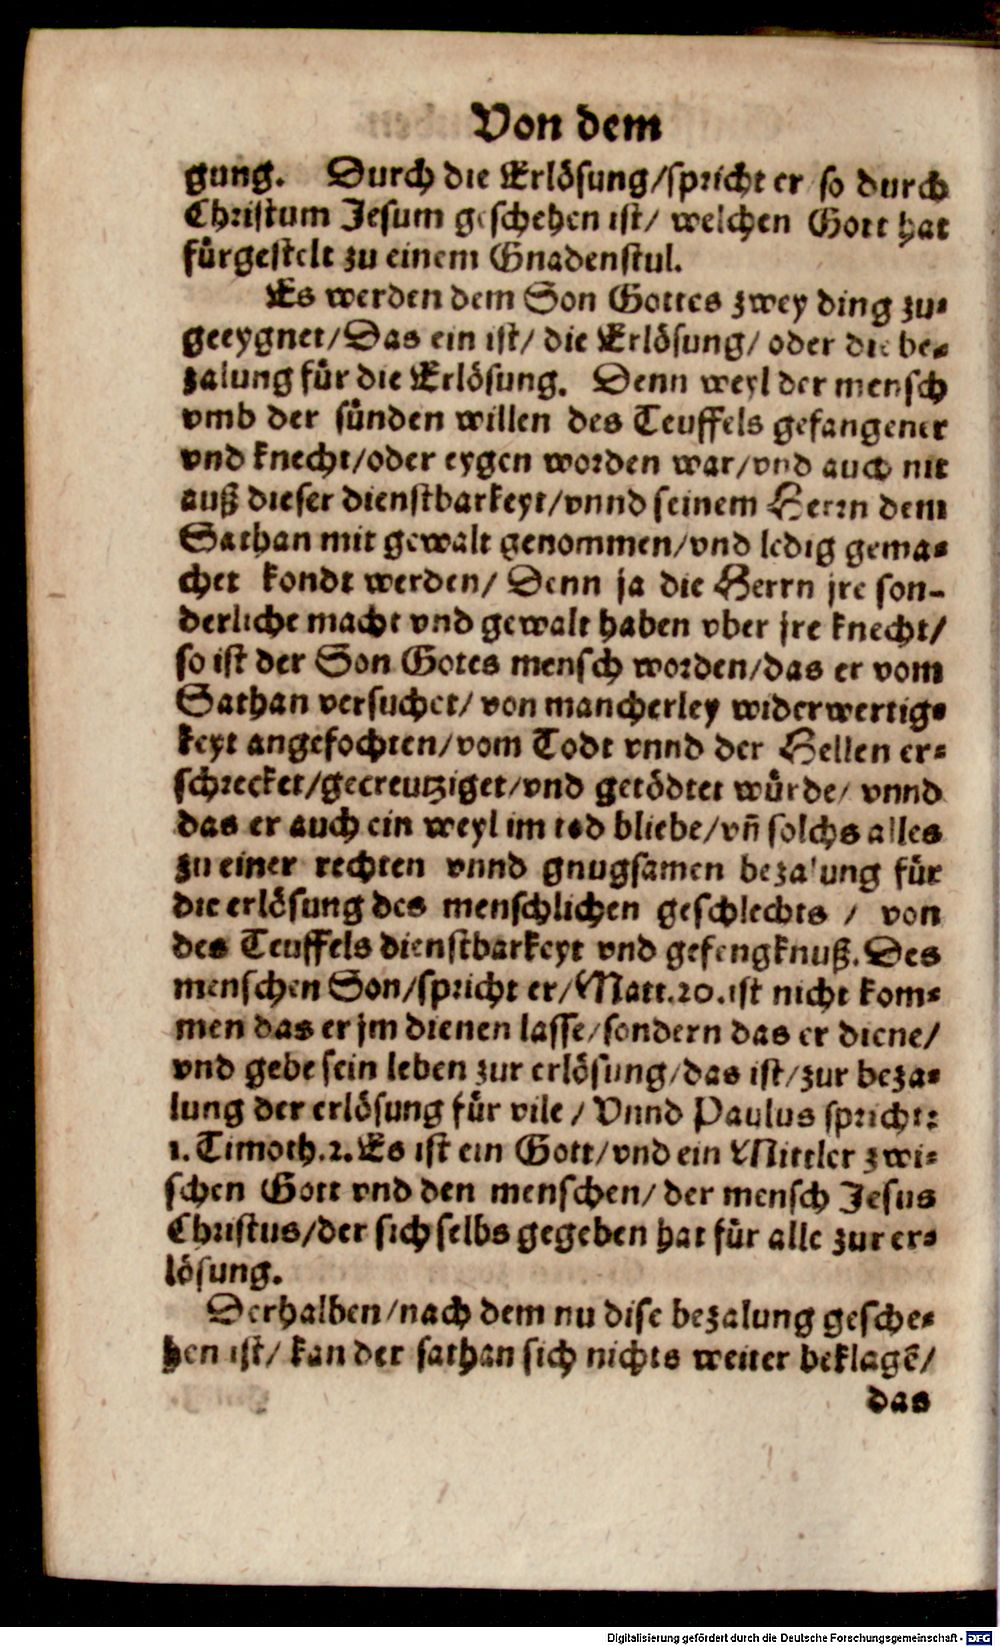 Von dem
gung. Durch die Erlösung/spricht er so durch
Christum Jesum geschehen ist/ welchen Gott hat
fürgestelt zu einem Gnadenstul.
Es werden dem Son Gottes zwey ding zu⸗
geeygnet/Das ein ist/ die Erlösung/ oder die be⸗
zalung für die Erlösung. Denn weyl der mensch
vmb der sünden willen des Teuffels gefangener
vnd knecht/oder eygen worden war/vnd auch nit
auß dieser dienstbarkeyt/vnnd seinem Herrn dem
Sathan mit gewalt genommen/vnd ledig gema⸗
chet kondt werden/ Denn ja die Herrn jre son-
derliche macht vnd gewalt haben vber jre knecht/
so ist der Son Gotes mensch worden/das er vom
Sathan versuchet/ von mancherley widerwertig⸗
keyt angefochten/vom Todt vnnd der Hellen er⸗
schrecket/gecreutziget/vnd getödtet würde/ vnnd
das er auch ein weyl im tod bliebe/vn̄ solchs alles
zu einer rechten vnnd gnugsamen bezalung für
die erlösung des menschlichen geschlechts / von
des Teuffels dienstbarkeyt vnd gefengknuß. Des
menschen Son/spricht er/Matt.20.ist nicht kom⸗
men das er jm dienen lasse/sondern das er diene/
vnd gebe sein leben zur erlösung/das ist/zur beza⸗
lung der erlösung für vile / Vnnd Paulus spricht:
1.Timoth.2.Es ist ein Gott/vnd ein Mittler zwi⸗
schen Gott vnd den menschen/ der mensch Jesus
Christus/der sich selbs gegeben hat für alle zur er⸗
lösung.
Derhalben/nach dem nu dise bezalung gesche⸗
hen ist/ kan der sathan sich nichts weiter beklagē/
das
Digitalisierung gefördert durch die Deutsche Forschungsgemeinschaft - DFG